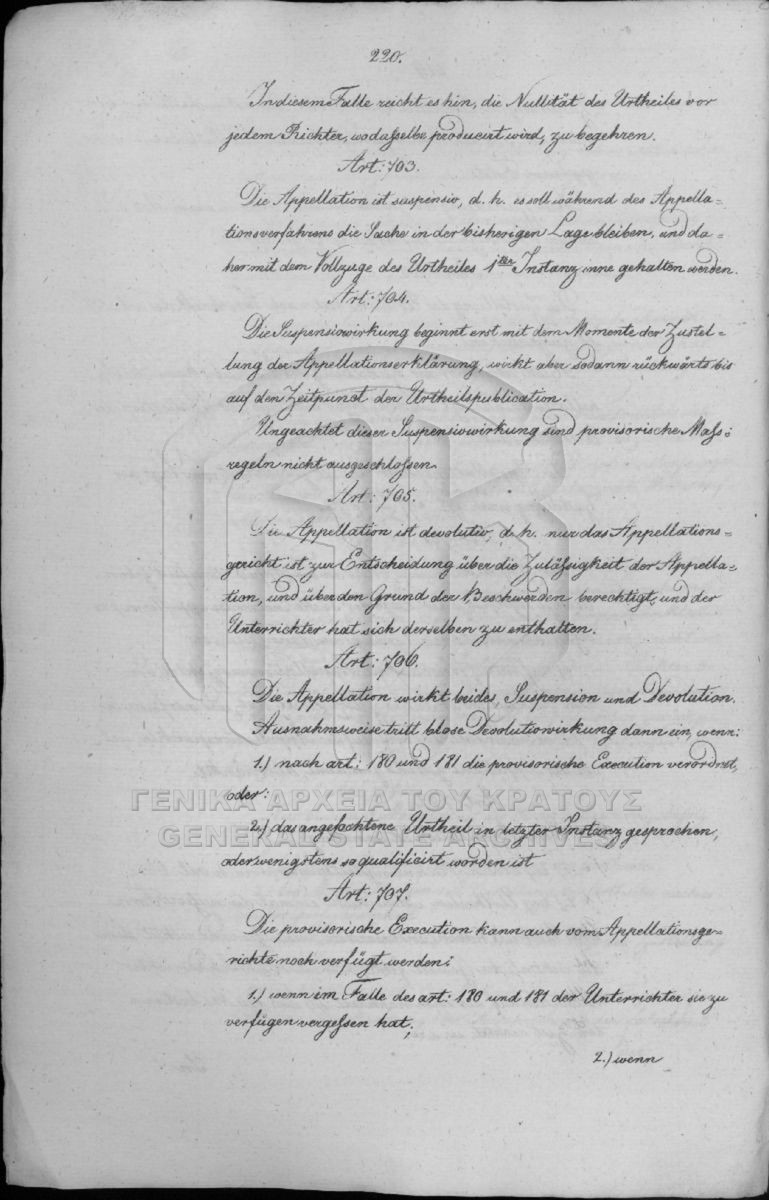 220.
In diesem Falle reicht es hin, die Nullität des Urtheiles vor
jedem Richter, wo dasselbe producirt wird, zu begehren.
Art: 703.
Die Appellation ist suspensiv, d. h. es soll während des Appella-
tionsverfahrens die Sache in der bisherigen Lage bleiben, und da-
her mit dem Vollzuge des Urtheiles 1ter Instanz inne gehalten werden.
Art: 704.
Die Suspensivwirkung beginnt erst mit dem Momente der Zustel-
lung der Appellationserklärung, wirkt aber sodann rückwärts bis
auf den Zeitpunct der Urtheilspublication.
Ungeachtet dieser Suspensivwirkung sind provisorische Mass-
regeln nicht ausgeschlossen.
Art: 705.
Die Appellation ist devolutiv, d. h. nur das Appellations-
gericht ist zur Entscheidung über die Zulässigkeit der Appella-
tion, und über den Grund der Beschwerden berechtigt, und der
Unterrichter hat sich derselben zu enthalten.
Art: 706.
Die Appellation wirkt beides, Suspension und Devolution.
Ausnahmsweise tritt blose Devolutivwirkung dann ein, wenn:
1.) nach art: 180 und 181 die provisorische Execution verordnet,
oder:
ΓΕΝΙΚΑ ΑΡΧΕΙΑ ΤΟΥ ΚΡΑΤΟΥΣ
2.) das angefochtene Urtheil in letzter Instanz gesprochen,
GENERAL STATE ARCHIVES
oder wenigstens so qualificirt worden ist
Art: 707.
Die provisorische Execution kann auch vom Appellationsge-
richte noch verfügt werden:
1.) wenn im Falle des art: 180 und 181 der Unterrichter sie zu
verfügen vergessen hat;
2.) wenn